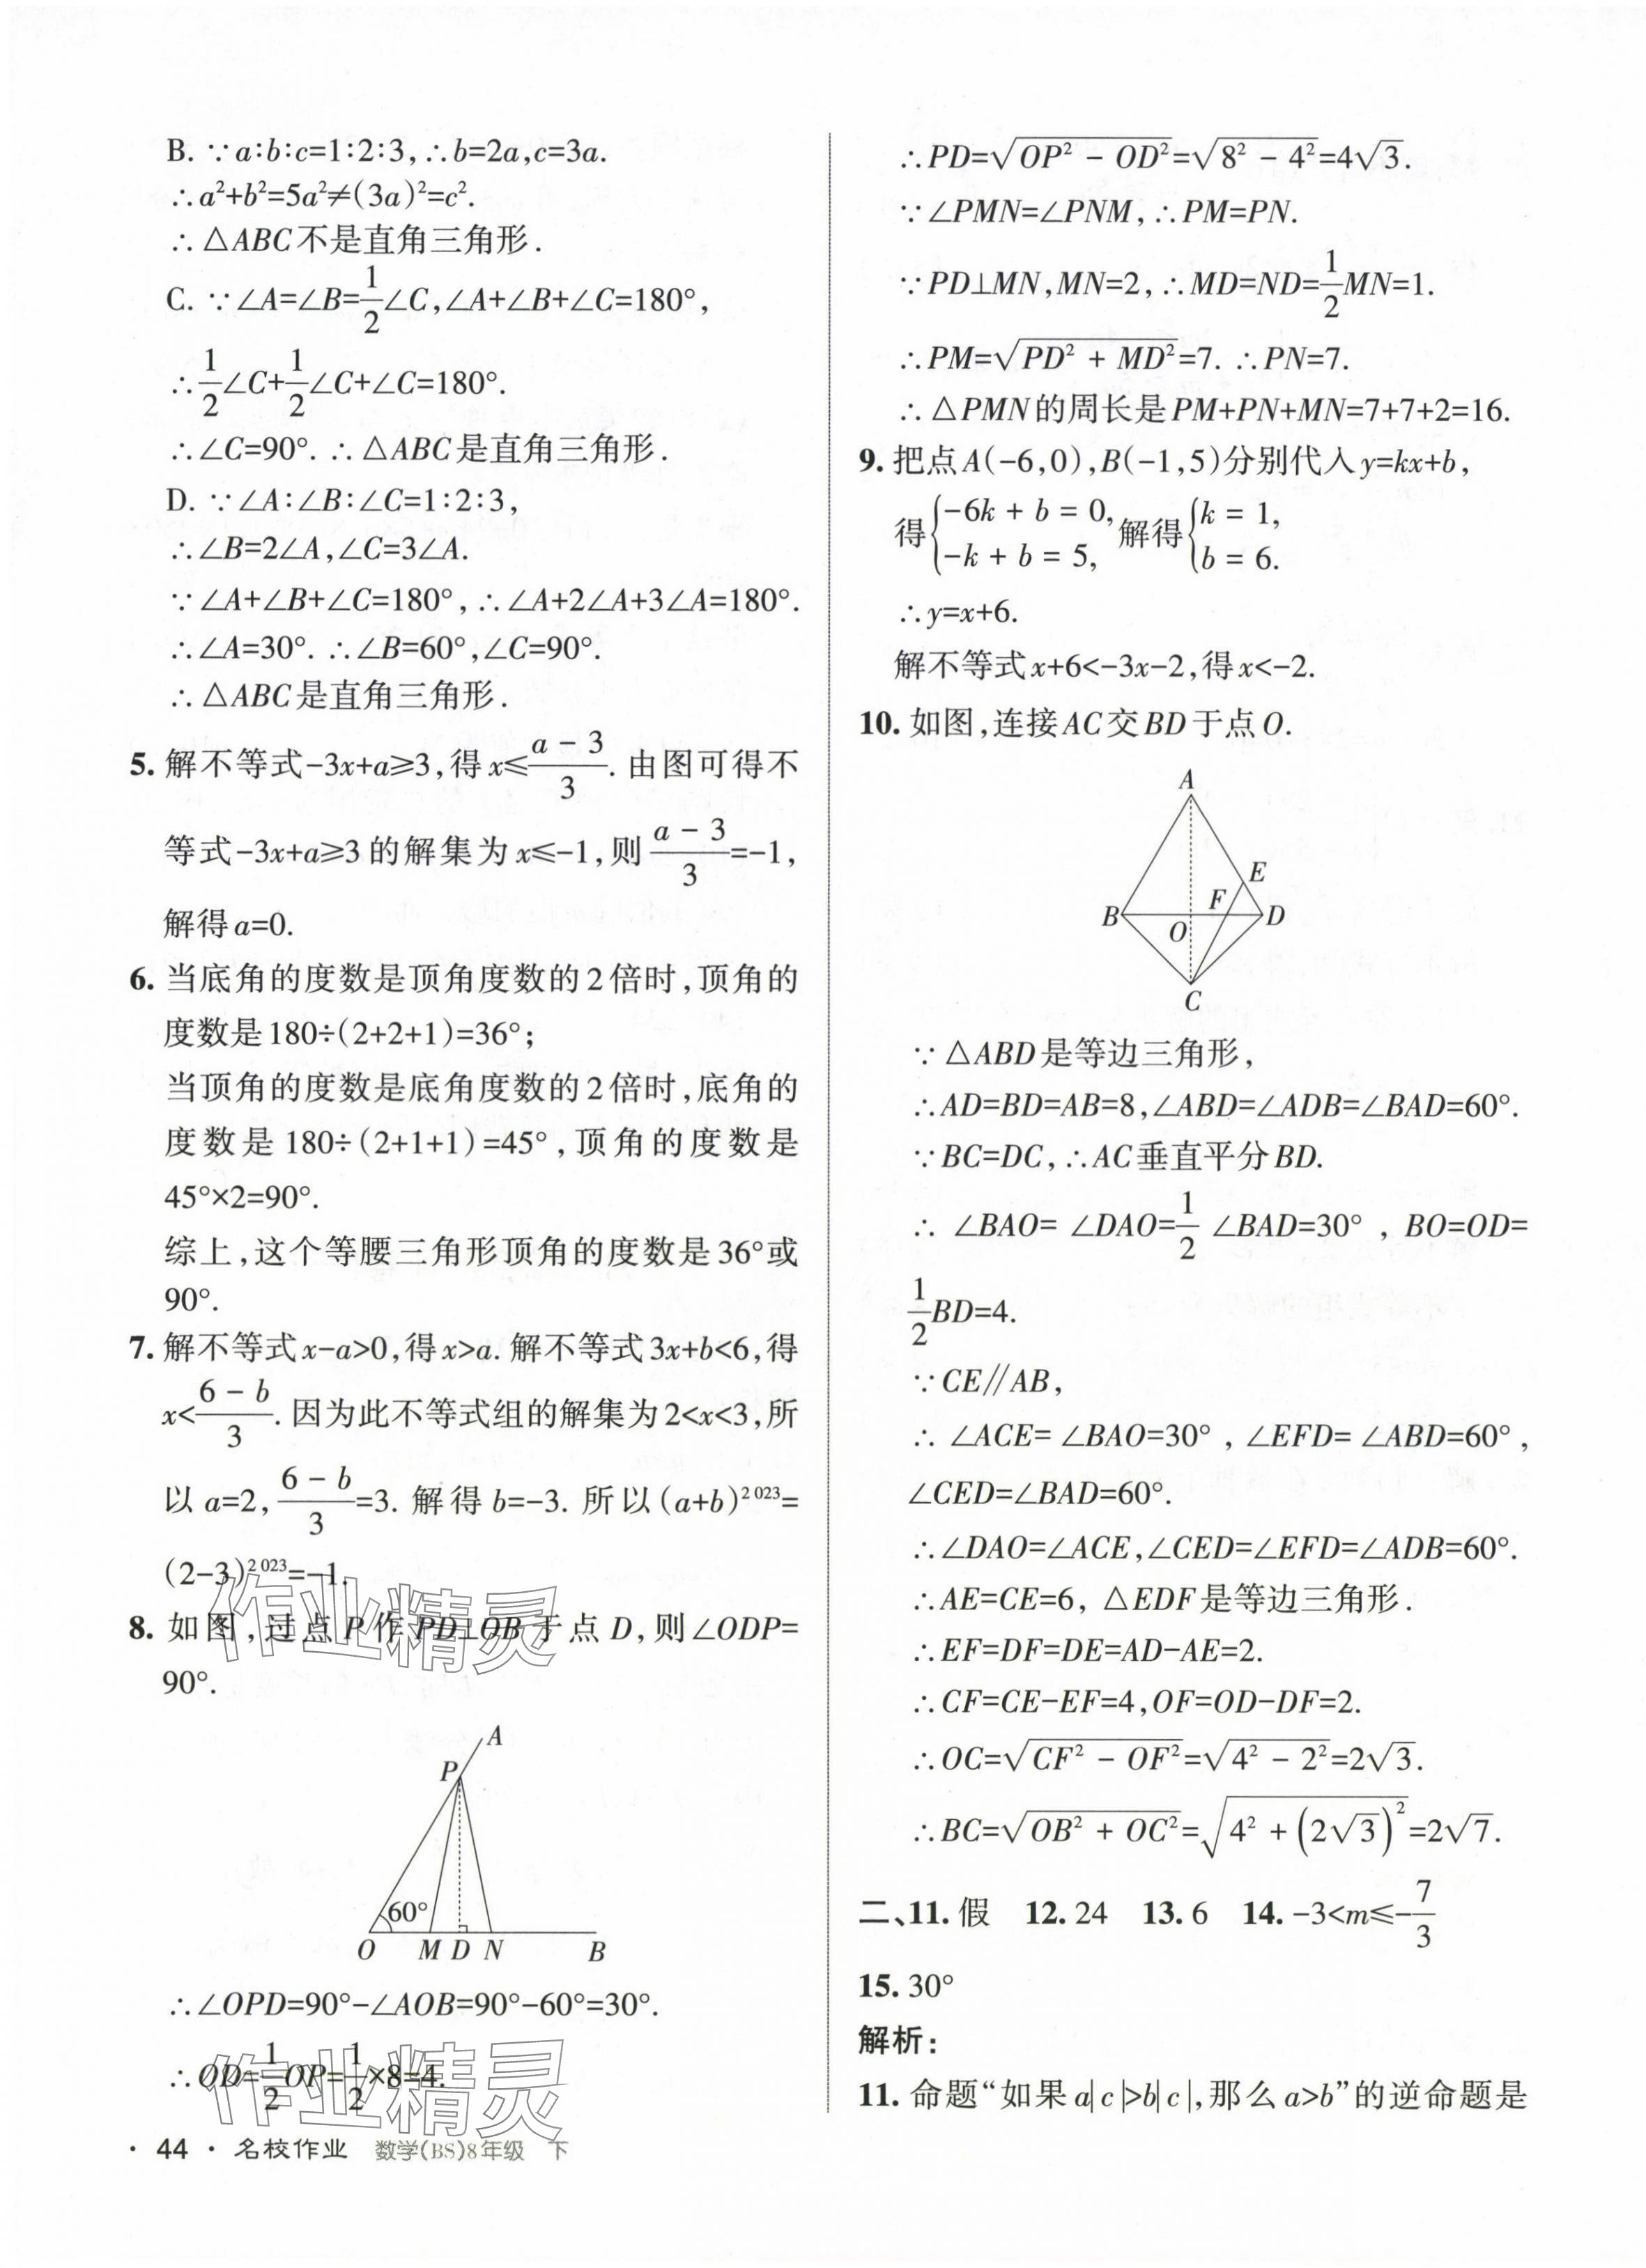 B. ∵a∶b∶c=1∶2∶3,∴b=2a,c=3a.
∴a²+b²=5a²≠(3a)²=c².
∴△ABC不是直角三角形.
C. ∵∠A=∠B=1/2∠C,∠A+∠B+∠C=180°,
∴1/2∠C+1/2∠C+∠C=180°.
∴∠C=90°. ∴△ABC是直角三角形.
D. ∵∠A∶∠B∶∠C=1∶2∶3,
∴∠B=2∠A,∠C=3∠A.
∵∠A+∠B+∠C=180°,∴∠A+2∠A+3∠A=180°.
∴∠A=30°. ∴∠B=60°,∠C=90°.
∴△ABC是直角三角形.
5. 解不等式-3x+a≥3,得x≤(a-3)/3. 由图可得不
等式-3x+a≥3的解集为x≤-1,则(a-3)/3=-1,
解得a=0.
6. 当底角的度数是顶角度数的2倍时,顶角的
度数是180÷(2+2+1)=36°;
当顶角的度数是底角度数的2倍时,底角的
度数是180÷(2+1+1)=45°,顶角的度数是
45°×2=90°.
综上,这个等腰三角形顶角的度数是36°或
90°.
7. 解不等式x-a>0,得x>a. 解不等式3x+b<6,得
x<(6-b)/3. 因为此不等式组的解集为2<x<3,所
以a=2,(6-b)/3=3. 解得b=-3. 所以(a+b)²⁰²³=
(2-3)²⁰²³=-1.
8. 如图,过点P作PD⊥OB于点D,则∠ODP=
90°.
A
P
60°
O M D N B
∴∠OPD=90°-∠AOB=90°-60°=30°.
∴OD=1/2OP=1/2×8=4.
作业精灵
作业精灵
· 44 · 名校作业 数学(BS)8年级 下
∴PD=√(OP²-OD²)=√(8²-4²)=4√3.
∵∠PMN=∠PNM,∴PM=PN.
∵PD⊥MN,MN=2,∴MD=ND=1/2MN=1.
∴PM=√(PD²+MD²)=7. ∴PN=7.
∴△PMN的周长是PM+PN+MN=7+7+2=16.
9. 把点A(-6,0),B(-1,5)分别代入y=kx+b,
得{-6k+b=0, -k+b=5, 解得{k=1, b=6.
∴y=x+6.
解不等式x+6<-3x-2,得x<-2.
10. 如图,连接AC交BD于点O.
A
E
F
B O D
C
∵△ABD是等边三角形,
∴AD=BD=AB=8,∠ABD=∠ADB=∠BAD=60°.
∵BC=DC,∴AC垂直平分BD.
∴∠BAO=∠DAO=1/2∠BAD=30°,BO=OD=
1/2BD=4.
∵CE∥AB,
∴∠ACE=∠BAO=30°,∠EFD=∠ABD=60°,
∠CED=∠BAD=60°.
∴∠DAO=∠ACE,∠CED=∠EFD=∠ADB=60°.
∴AE=CE=6,△EDF是等边三角形.
∴EF=DF=DE=AD-AE=2.
∴CF=CE-EF=4,OF=OD-DF=2.
∴OC=√(CF²-OF²)=√(4²-2²)=2√3.
∴BC=√(OB²+OC²)=√(4²+(2√3)²)=2√7.
二、11. 假 12. 24 13. 6 14. -3<m≤-7/3
15. 30°
解析:
11. 命题“如果a|c|>b|c|,那么a>b”的逆命题是